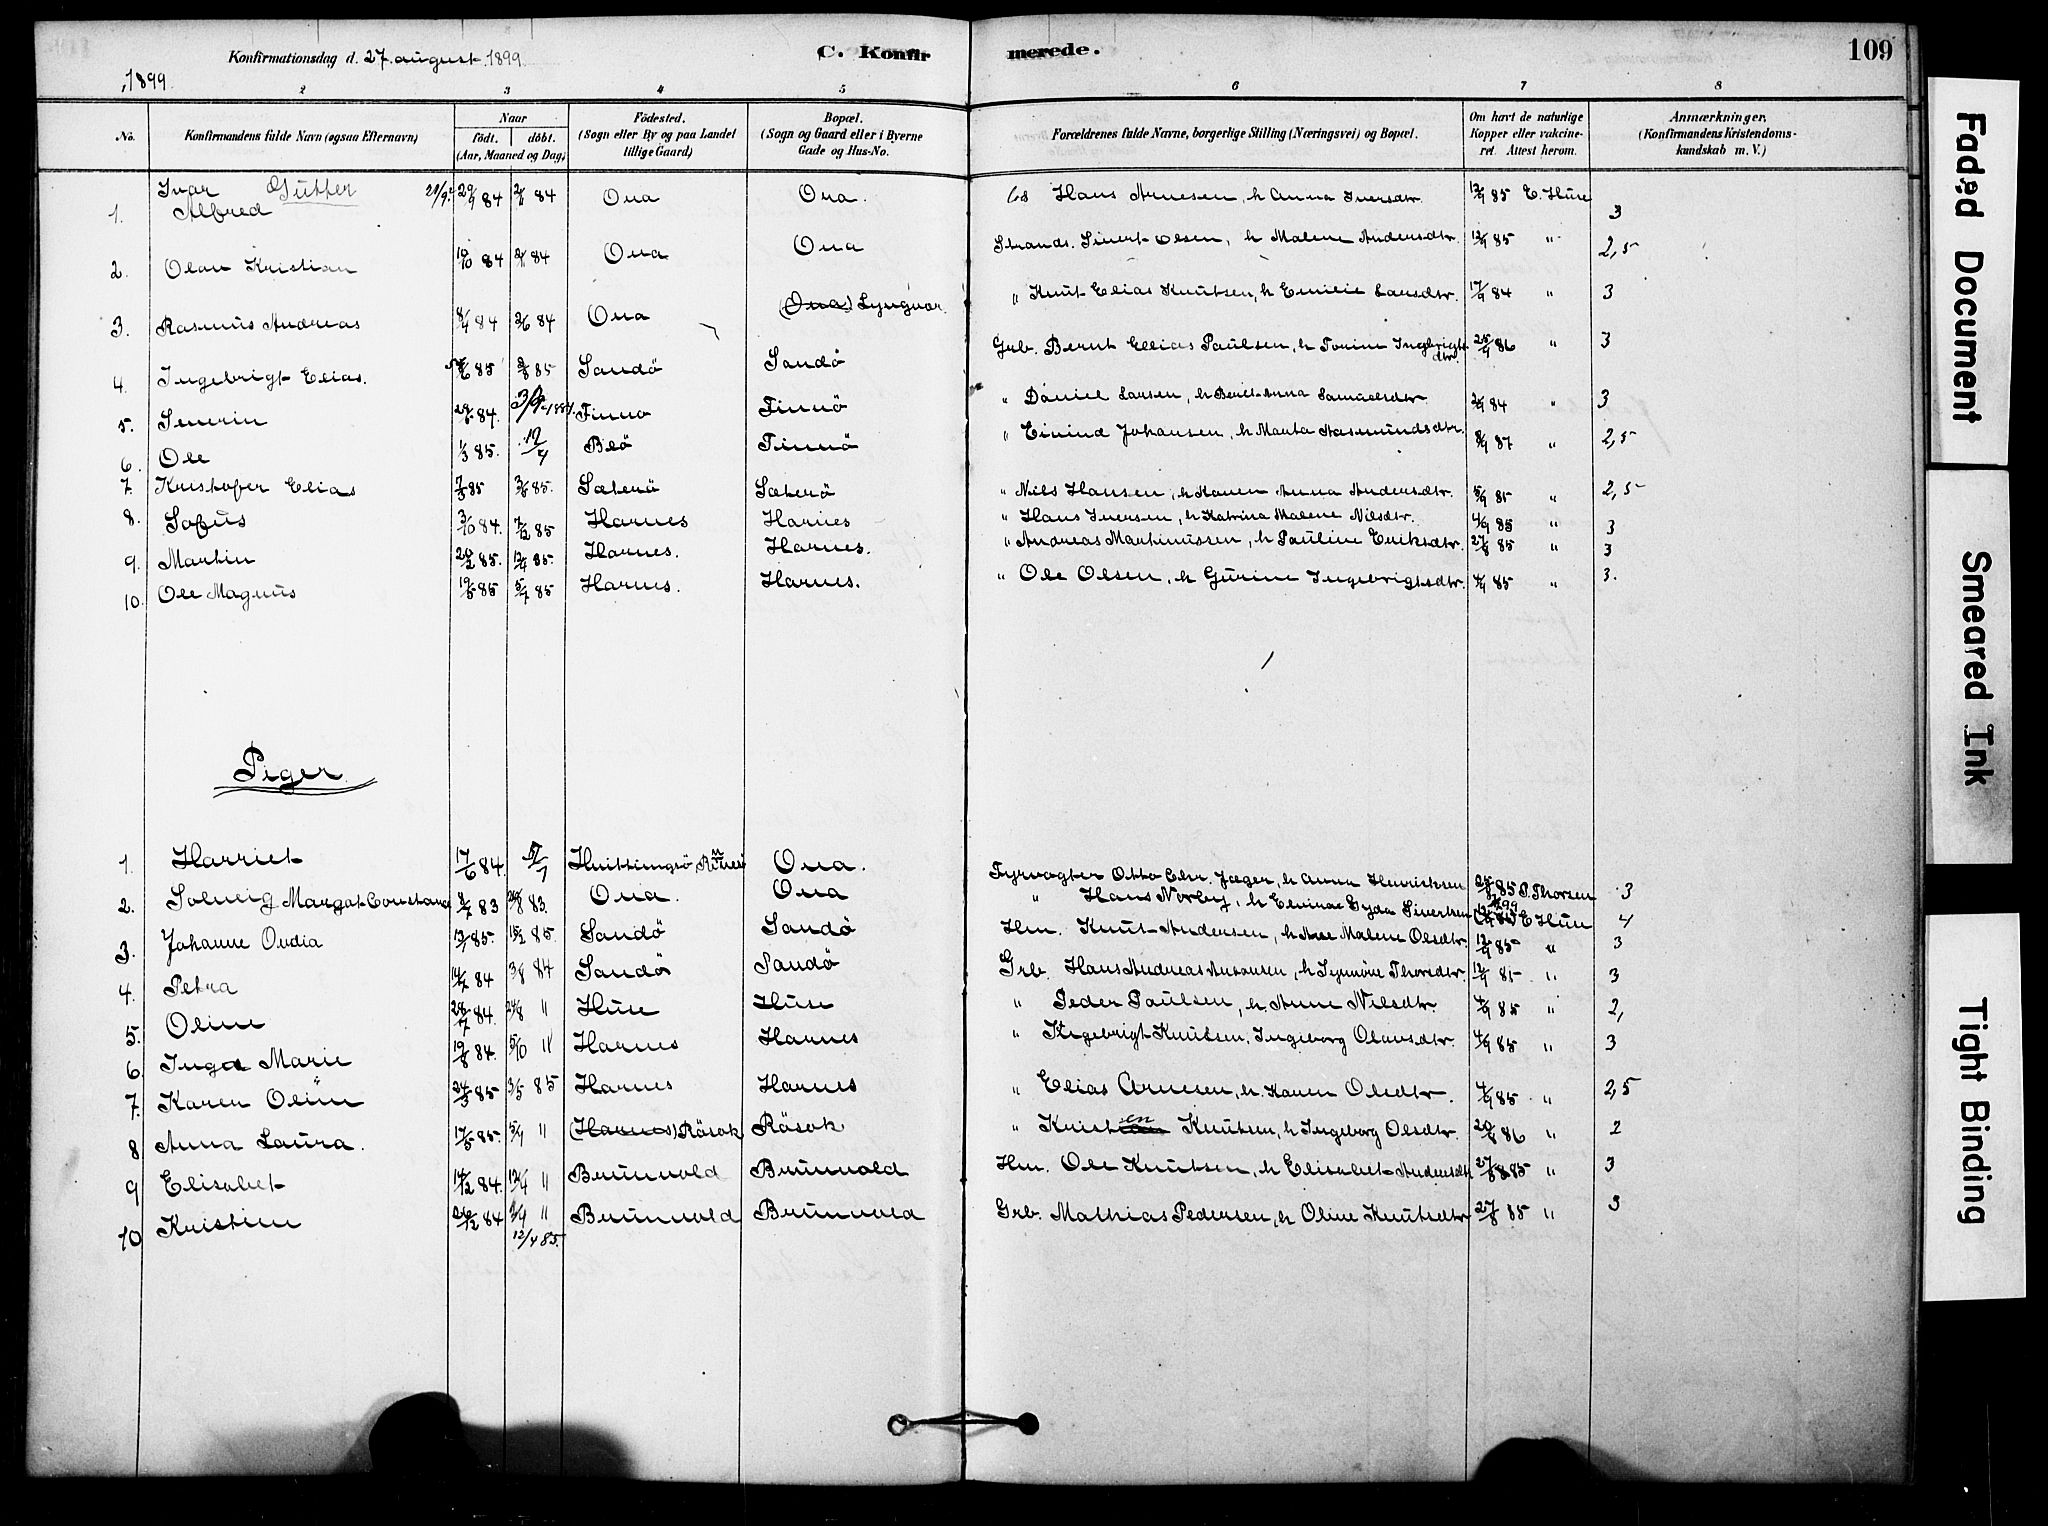 Konfirmationsdag d. 27. august. 1899.
C. Konfirmerede.
109
1899.
2 3 4 5 6 7 8
No. Konfirmandens fulde Navn (ogsaa Efternavn)
Naar født. døbt. (Aar, Maaned og Dag)
Fødested. (Sogn eller By og paa Landet tillige Gaard)
Bopæl. (Sogn og Gaard eller i Byerne Gade og Hus-No.
Forældrenes fulde Navne, borgerlige Stilling (Næringsvei) og Bopæl.
Om havt de naturlige Kopper eller vakcineret. Attest herom.
Anmærkninger. (Konfirmandens Kristendomskundskab m. V.)
Gutter
1. Ivar Alfred 84 84 Ona Ona. Hans Arnesen, h Anna Iversdtr. 85 E. Huse 3
2. Olau Kristian 19/10 84 84 Ona Ona Strands. Sivert Olsen, h Malene Andersdtr. 85 " 2,5
3. Rasmus Andreas 84 84 Ona (Ona) Lyngvær. " Knut Elias Knutsen, h Emilie Larsdtr. 84 " 3
4. Ingebrigt Elias. 85 85 Sandö Sandö Grb. Bernt Elias Paulsen, h Ingebrigtsdtr. 86 " 3
5. Severin 84. 1884. Finnö Finnö " Daniel Larsen, h Berit Anna Samuelsdtr. 84 " 3
6. Ole 1/3 85. 12/4 Finnö " Eivind Johansen, h Marta Rasmundsdtr. 87 " 2,5
7. Kristofer Elias 85 85. Sæterö Sæterö " Niels Hansen, h Karen Anna Andersdtr. 85 " 2,5
8. Sofus 3/10 84. 7/12 85 Harnes Harnes " Hans Iversen, h Katrina Malene Nilsdtr. 85 " 3
9. Martin 85. 12/4 85. Harnes. Harnes. " Andreas Martinussen, h Pauline Eriksdtr. 27/8 85 " 3
10. Ole Magnus 19/5 85 5/7 85 Harnes. Harnes. " Ole Olsen, h Gurine Ingebrigtsdtr. 85 " 3.
Piger
1. Harriet 17/6 84. Ona. Fyrvogter Otto Chr. Jæger, h Anna Henriksen 85 P. Thorsen 3
2. Solveig Margat Constanse 83 83. Ona. Ona " Hans Norby, h Gyda Sivertsen E Huse 4
3. Johanne Ovidia 85. 15/2 85 Sandö Sandö Hm. Knut Andersen, h Malene Olsdtr. 85 " 3
4. Petra 84 3/8 84 Sandö Sandö Grb. Hans Andreas h Synnöve Thorsdtr. 85 " 3
5. Oline 84. 24/8 " Huse Huse " Peder Paulsen, h. Anne Nilsdtr. 85 " 2,
6. Inga Marie 19/8 84. 5/10 " Harnes Harnes " Ingebrigt Knutsen, Ingeborg Olausdtr. 85 " 3
7. Karen Oline 24/3 85 3/5 85 Harnes Harnes " Elias Arnesen, h. Karen Olsdtr. 85 " 2,5
8 Anna Laura. 17/5 85. " (Harnes) Rösok Rösok " Kristen Knutsen, h Ingeborg Olsdtr. 86 " 2
9 Elisabet 14/12 84. 12/4 " Brunvold Brunvold Hm. Ole Knutsen, h Elisabet Andersdtr 27/8 85 " 3
10 Kristine 84 " 12/4 85. Brunvold Brunvold Grb. Mathias Pedersen, h Oline Knutsdtr 27/8 85 " 3
Faded Document
Smeared Ink
Tight Binding